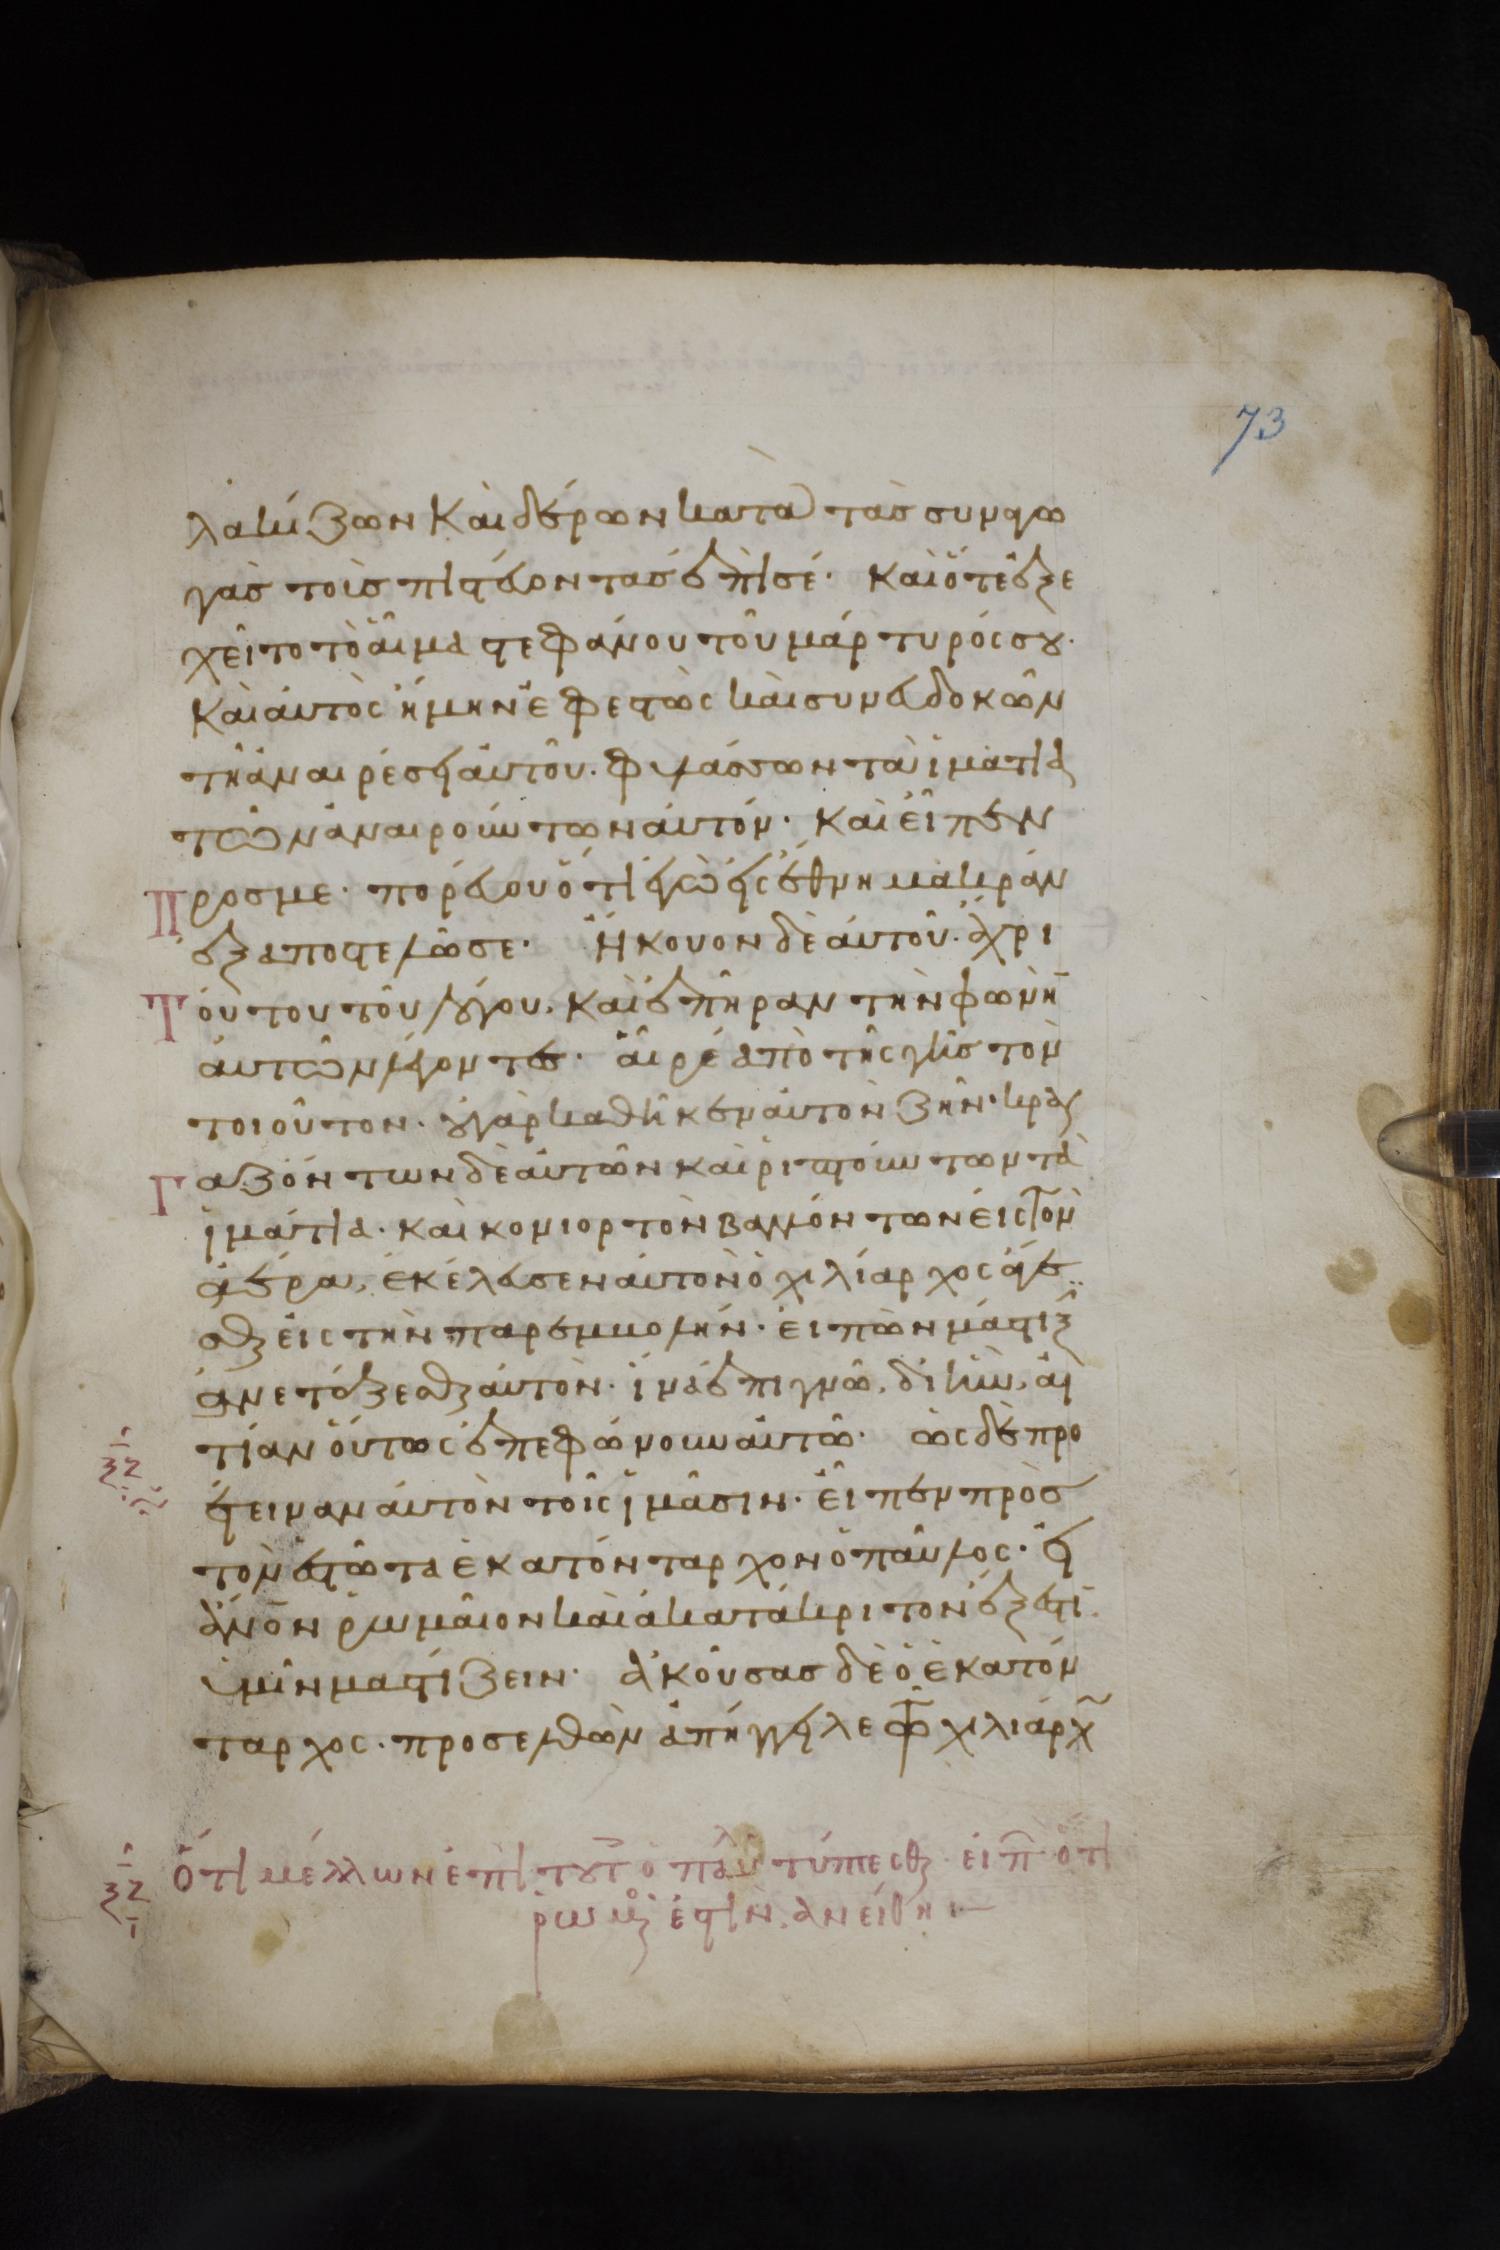 73
λακίζων και δέρων κατὰ τὰσ συναγω
γὰσ τοὺσ πιστεύοντασ ἐπὶ σέ· και ὅτε ἐξε
χεῖτο τὸ αἷμα στεφάνου τοῦ μάρτυρός σου·
και αὐτὸς ἤμην ἐφεστὼς και συνευδοκῶν
τῆ ἀναιρέσει αὐτοῦ· φυλάσσων τὰ ἱμάτια
τῶν ἀναιρούντων αὐτόν· και εἶπεν
προσ με· πορεύου ὅτι ἐγὼ εἰς ἔθνη μακρὰν
ἐξαποστελῶ σε· Ἤκουον δὲ αὐτοῦ· ἄχρι
τούτου τοῦ λόγου, και ἐπῆραν τὴν φωνὴ̄
αὐτῶν λέγοντες· αἶρε ἀπὸ τῆς γῆσ τὸν
τοιοῦτον· οὐ γὰρ καθῆκεν αὐτὸν ζῆν· κραυ
γαζόντων δὲ αὐτῶν και ῥιπτούντων τὰ
ἱμάτια· και κονιορτὸν βαλλόντων εἰς τὸν
ἀέρα, ἐκέλευσεν αὐτὸν ὁ χιλίαρχος ἄγε
σθαι εἰς τὴν παρεμβολήν· εἰπὼν μάστιξῑ
ἀνετάζεσθαι αὐτὸν· ἵνα ἐπιγνῶ, δι ἣν, αἰ
τίαν οὕτως ἐπεφώνουν αὐτῶ· ὡς δὲ προ
έτειναν αὐτὸν τοῖς ἱμᾶσιν· εἶπεν πρὸσ
τὸν ἑστῶτα ἑκατόνταρχον ὁ παῦλος· εἰ
ἄνον̄ ῥωμαῖον και ἀκατάκριτον ἔξεστι.
ὑμῖν μαστίζειν· ἀκούσασ δὲ ὁ ἑκατόν
ταρχος· προσελθὼν ἀπήγγειλε τῶ χιλιάρχ
ὅτι μέλλων ἐπὶ τούτ ὁ παῦλ τύπτεσθαι εἰπ ὅτι
ῥωμ ἐστὶν, ἀνείθη